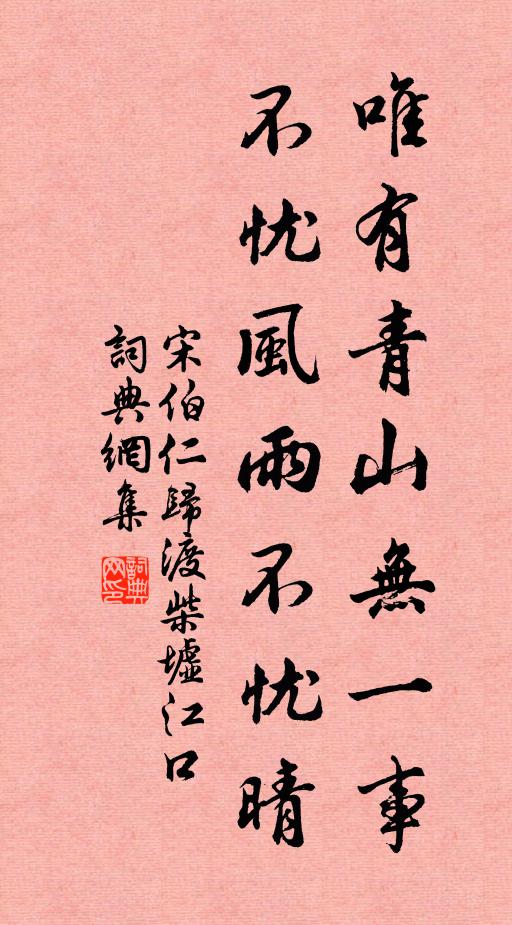 唯有青山無一事
不忧風雨不忧晴
宋伯仁歸渡柴墟江口
詞典網集
詞典网印